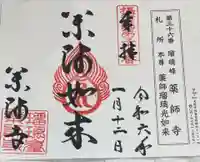 第三十六番 瑠璃峰 薬師寺
札所本尊 薬師瑠璃光如来
令和六年
一月十二日
奉拝
薬師如来
薬師寺